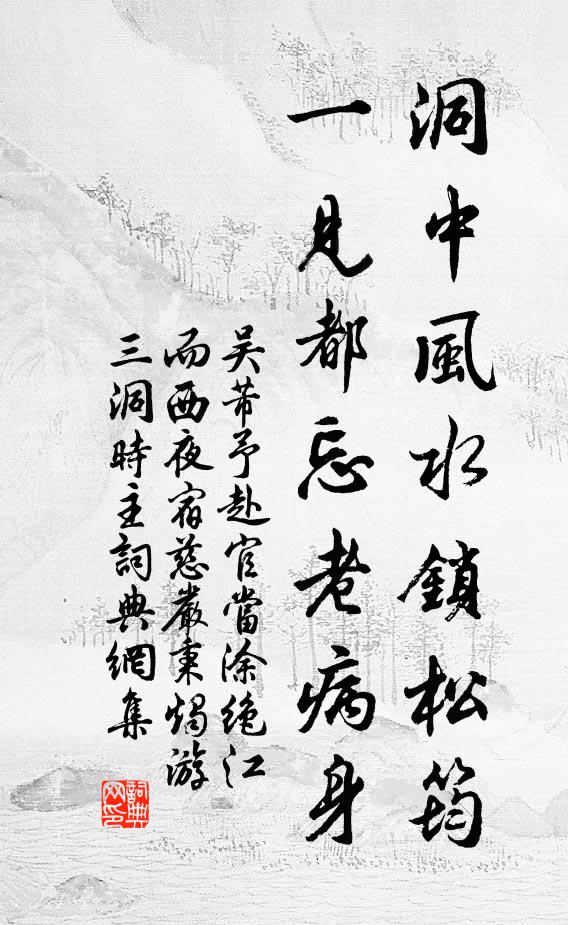 洞中風水鎖松筠
一見都忘老病身
吴芾予赴官當涂絶江
而西夜宿慈嚴秉燭游
三洞時主詞典網集
詞典
网印